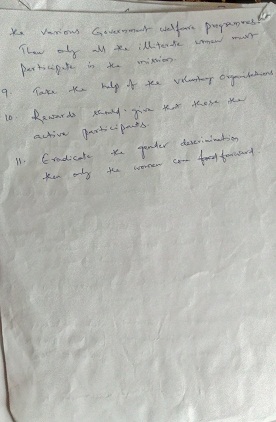 the various Government welfare programmes.
Then only all the illiterate women must
participate in the mission.
9. Take the help of the voluntary organisations
10. Rewards should give that those the
active participants.
11. Eradicate the gender descrimination
then only the women can forward.